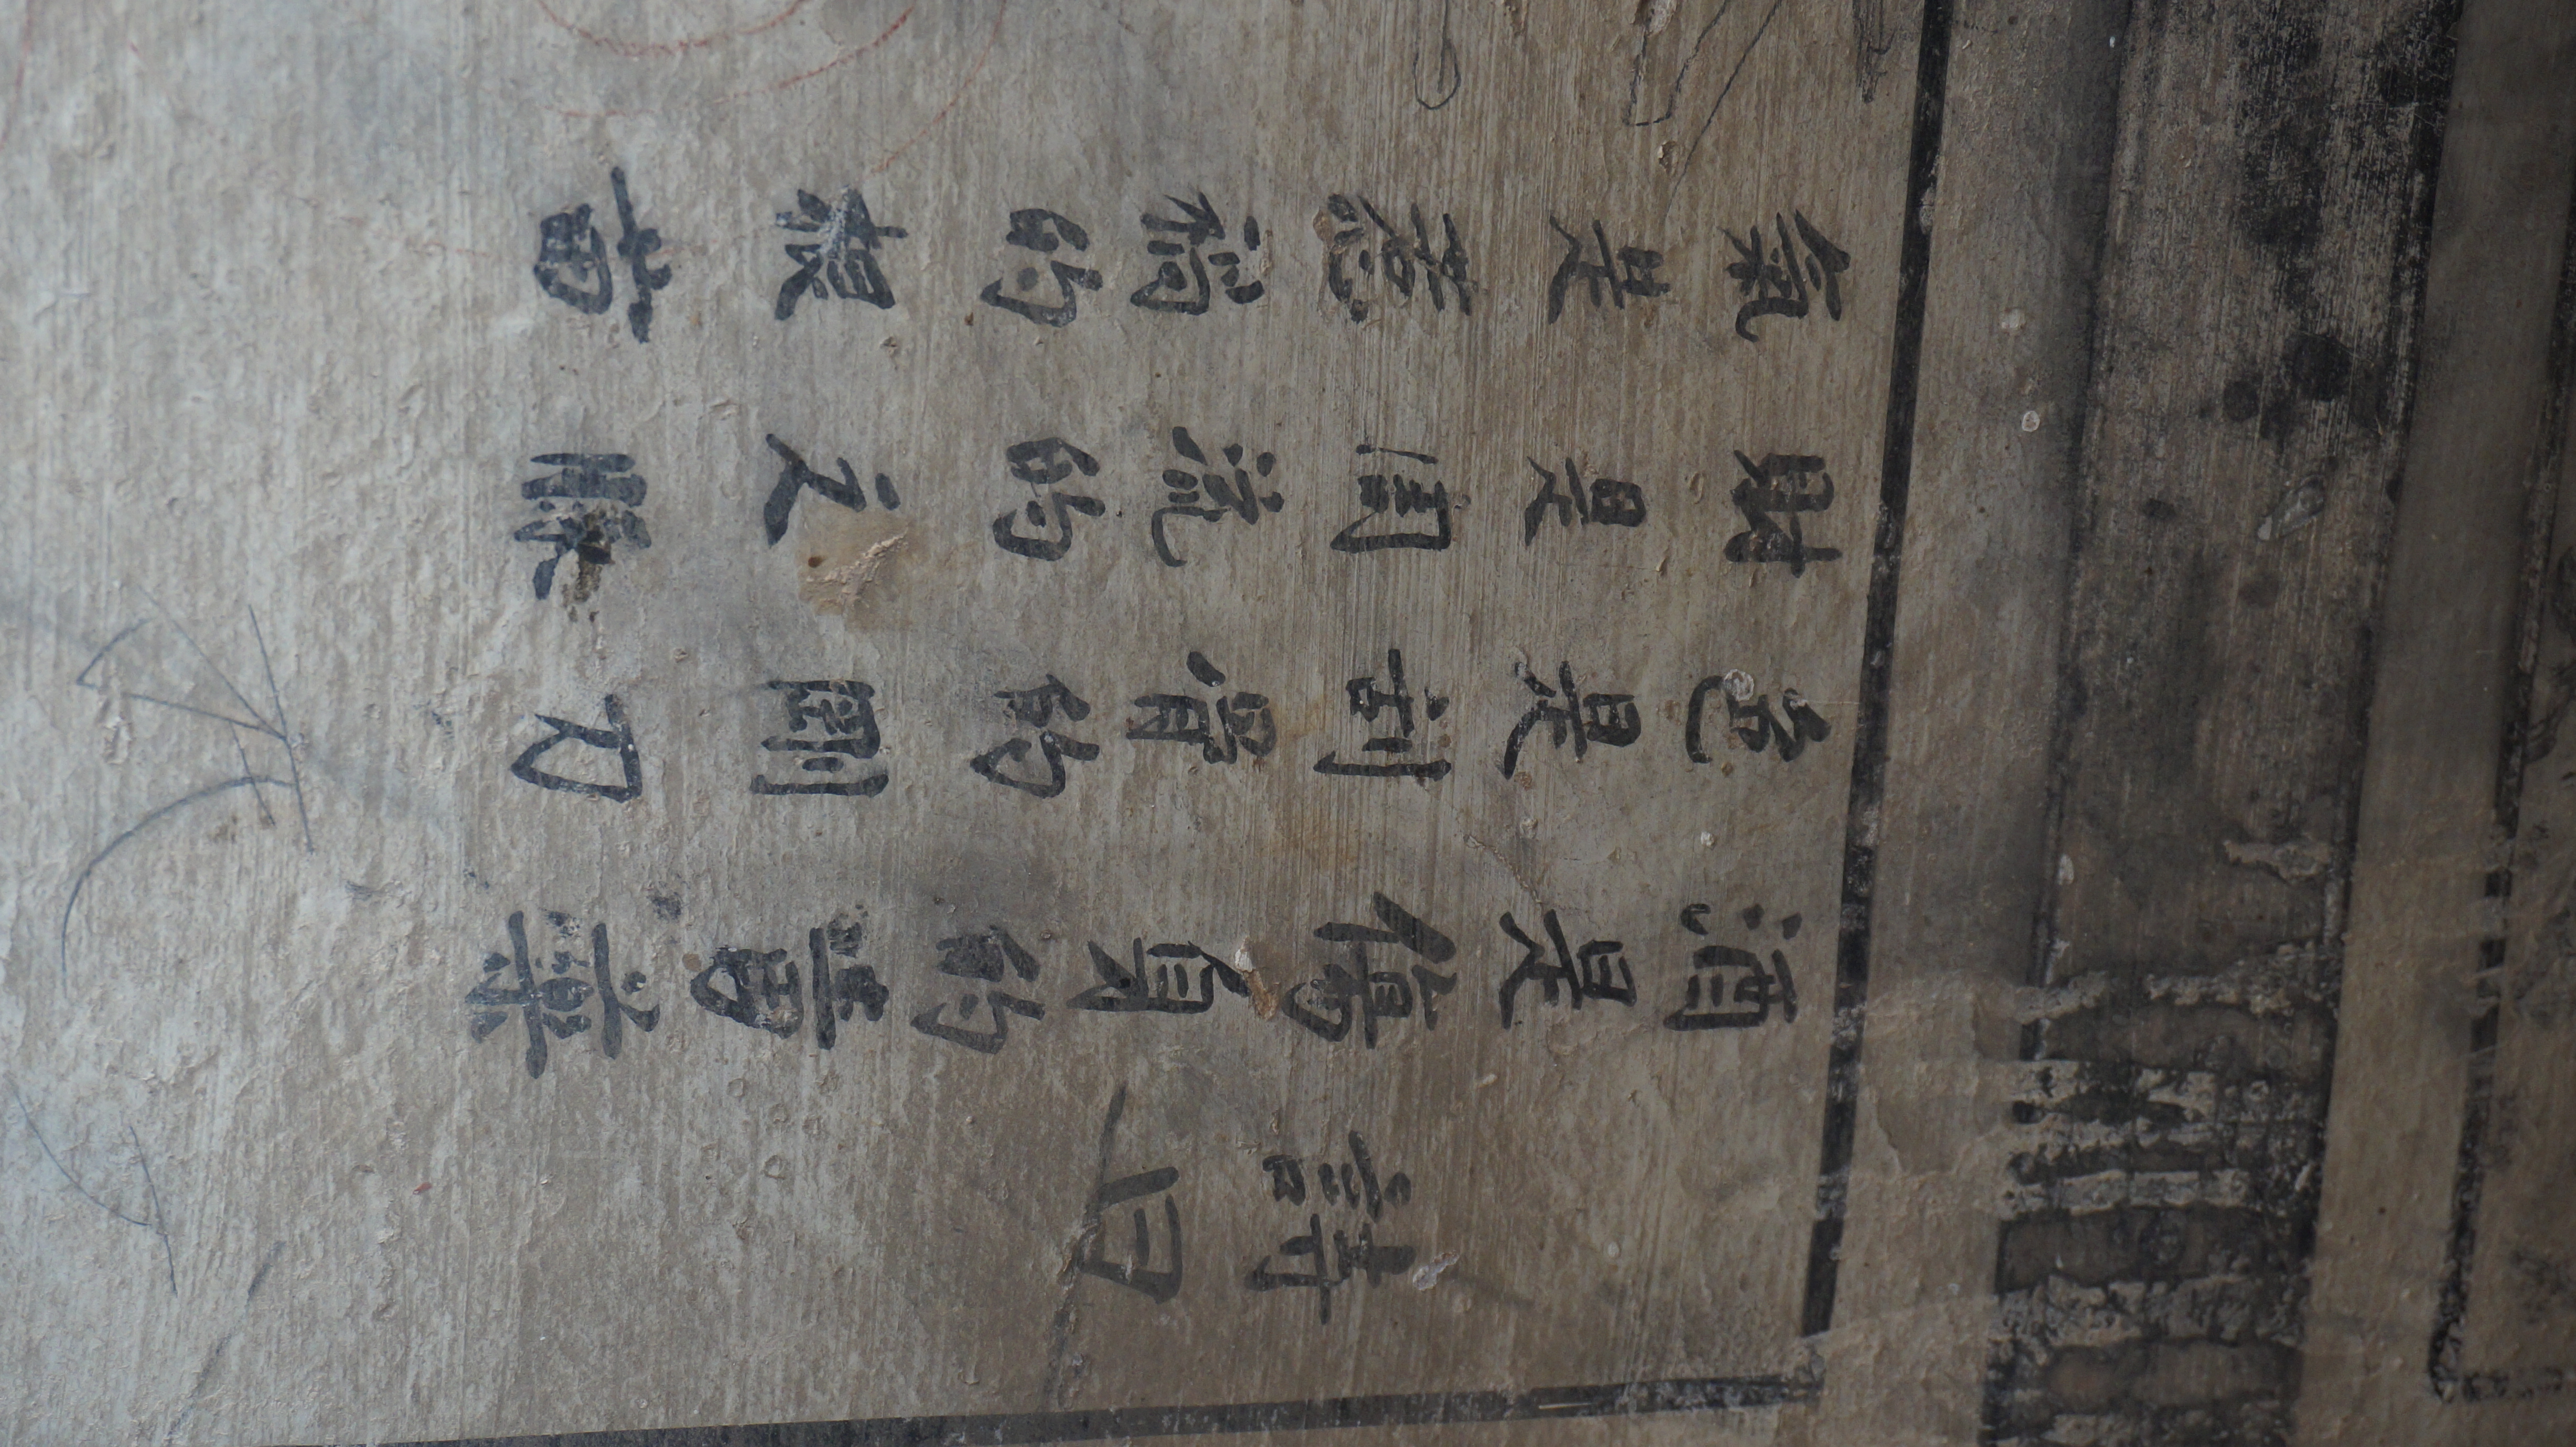 詩曰
酒是傷身的毒藥
色是刮骨的剛刀
財是流的
氣是惹禍的根苗